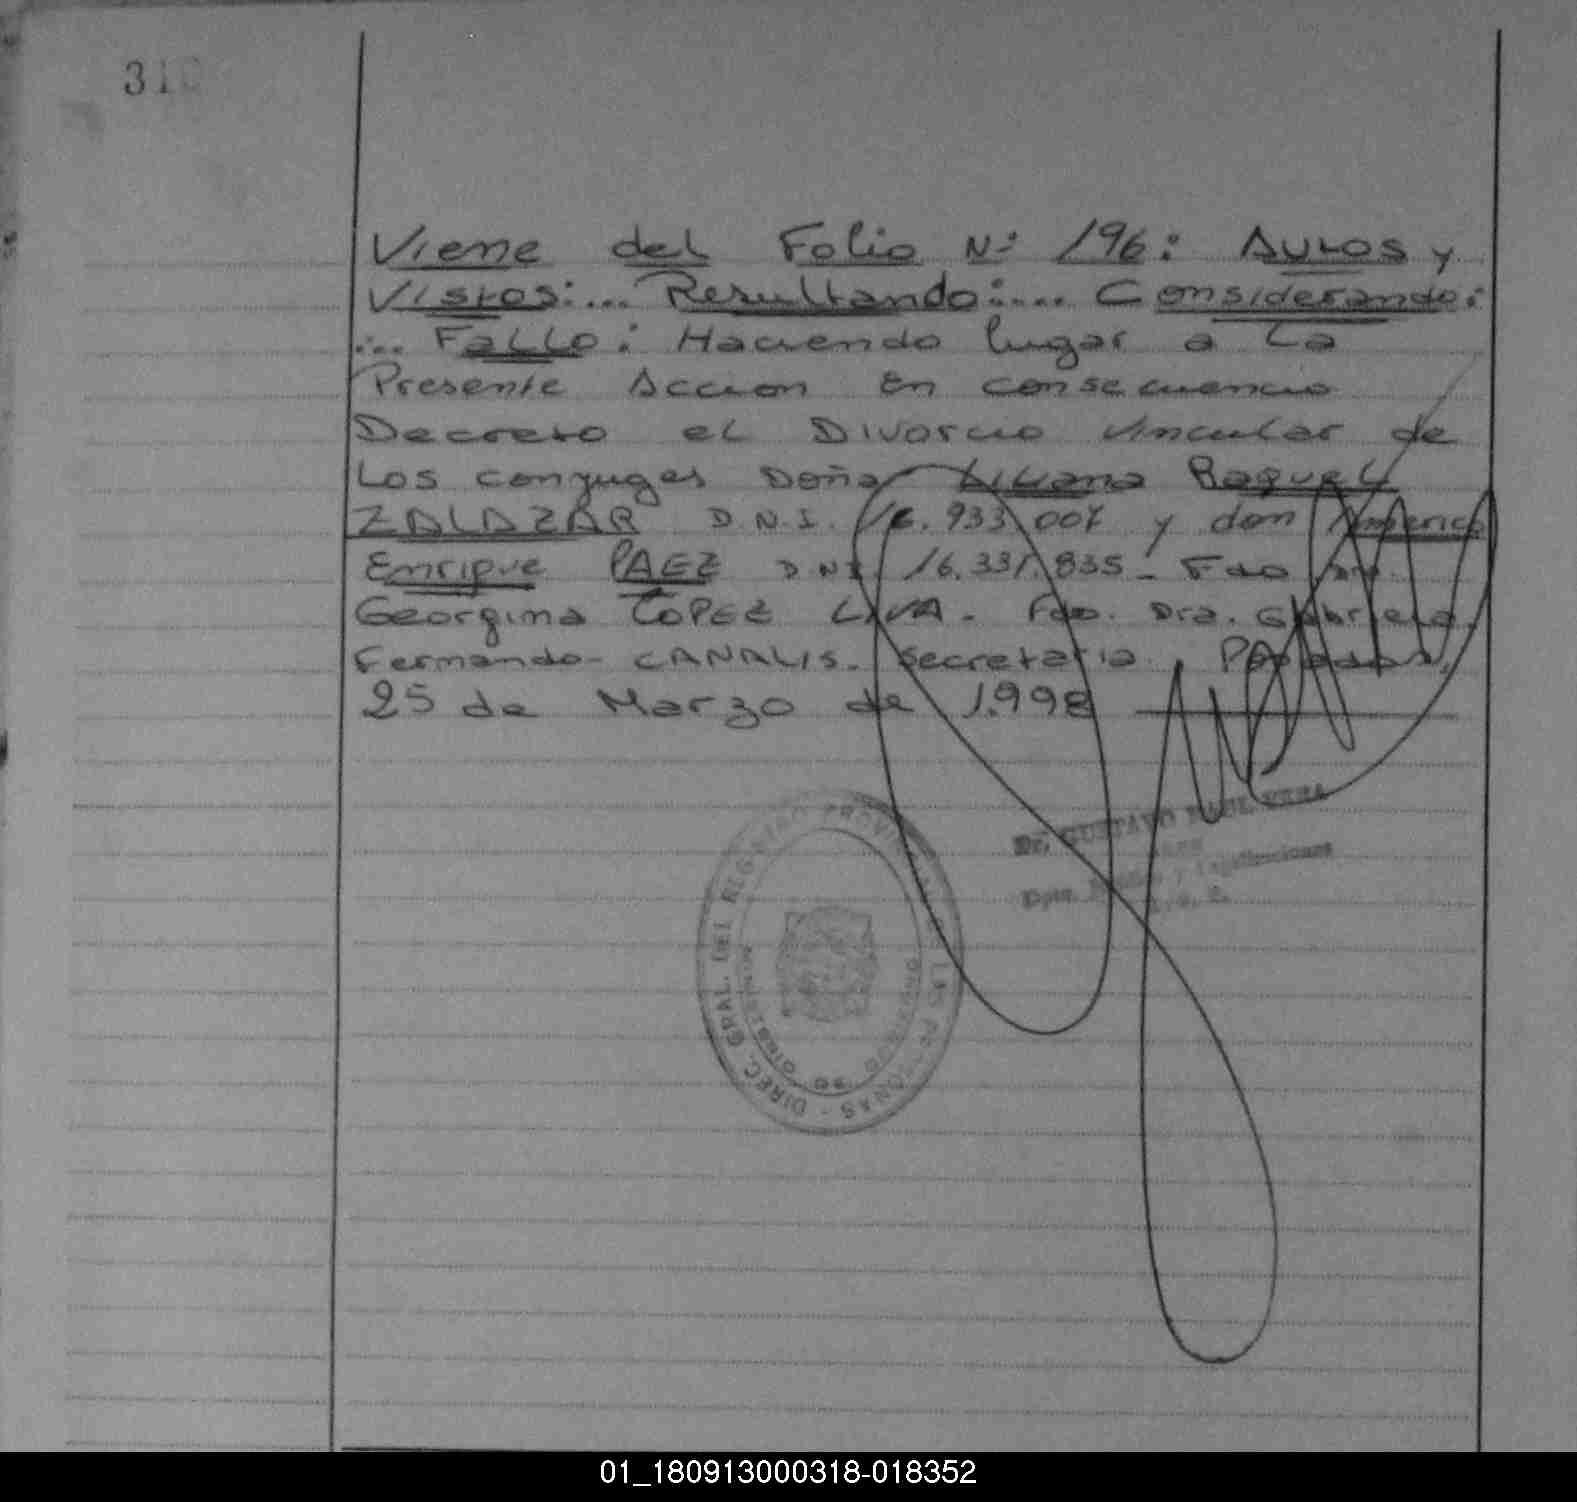 310
Viene del Folio Nº 196: Autos y
Vistos:... Resultando:.... Considerando:
... Fallo: Haciendo lugar a La
Presente Accion En consecuencia
Decreto el Divorcio vincular de
Los conyuges Doña Liliana Raquel
ZALAZAR D.N.I. 16.933.007 y don Americo
Enrique PAEZ D.N.I. 16.331.835 - Fdo Dra.
Georgina LOPEZ LIVA. Fdo. Dra. Gabriela.
Fernando CANALIS. Secretaria.
25 de Marzo de 1.998
Dr. GUSTAVO RAUL VERA
Dpto. y Legalizaciones
DIREC. GRAL. DEL REGISTRO PROVINCIAL DE LAS PERSONAS
01_180913000318-018352